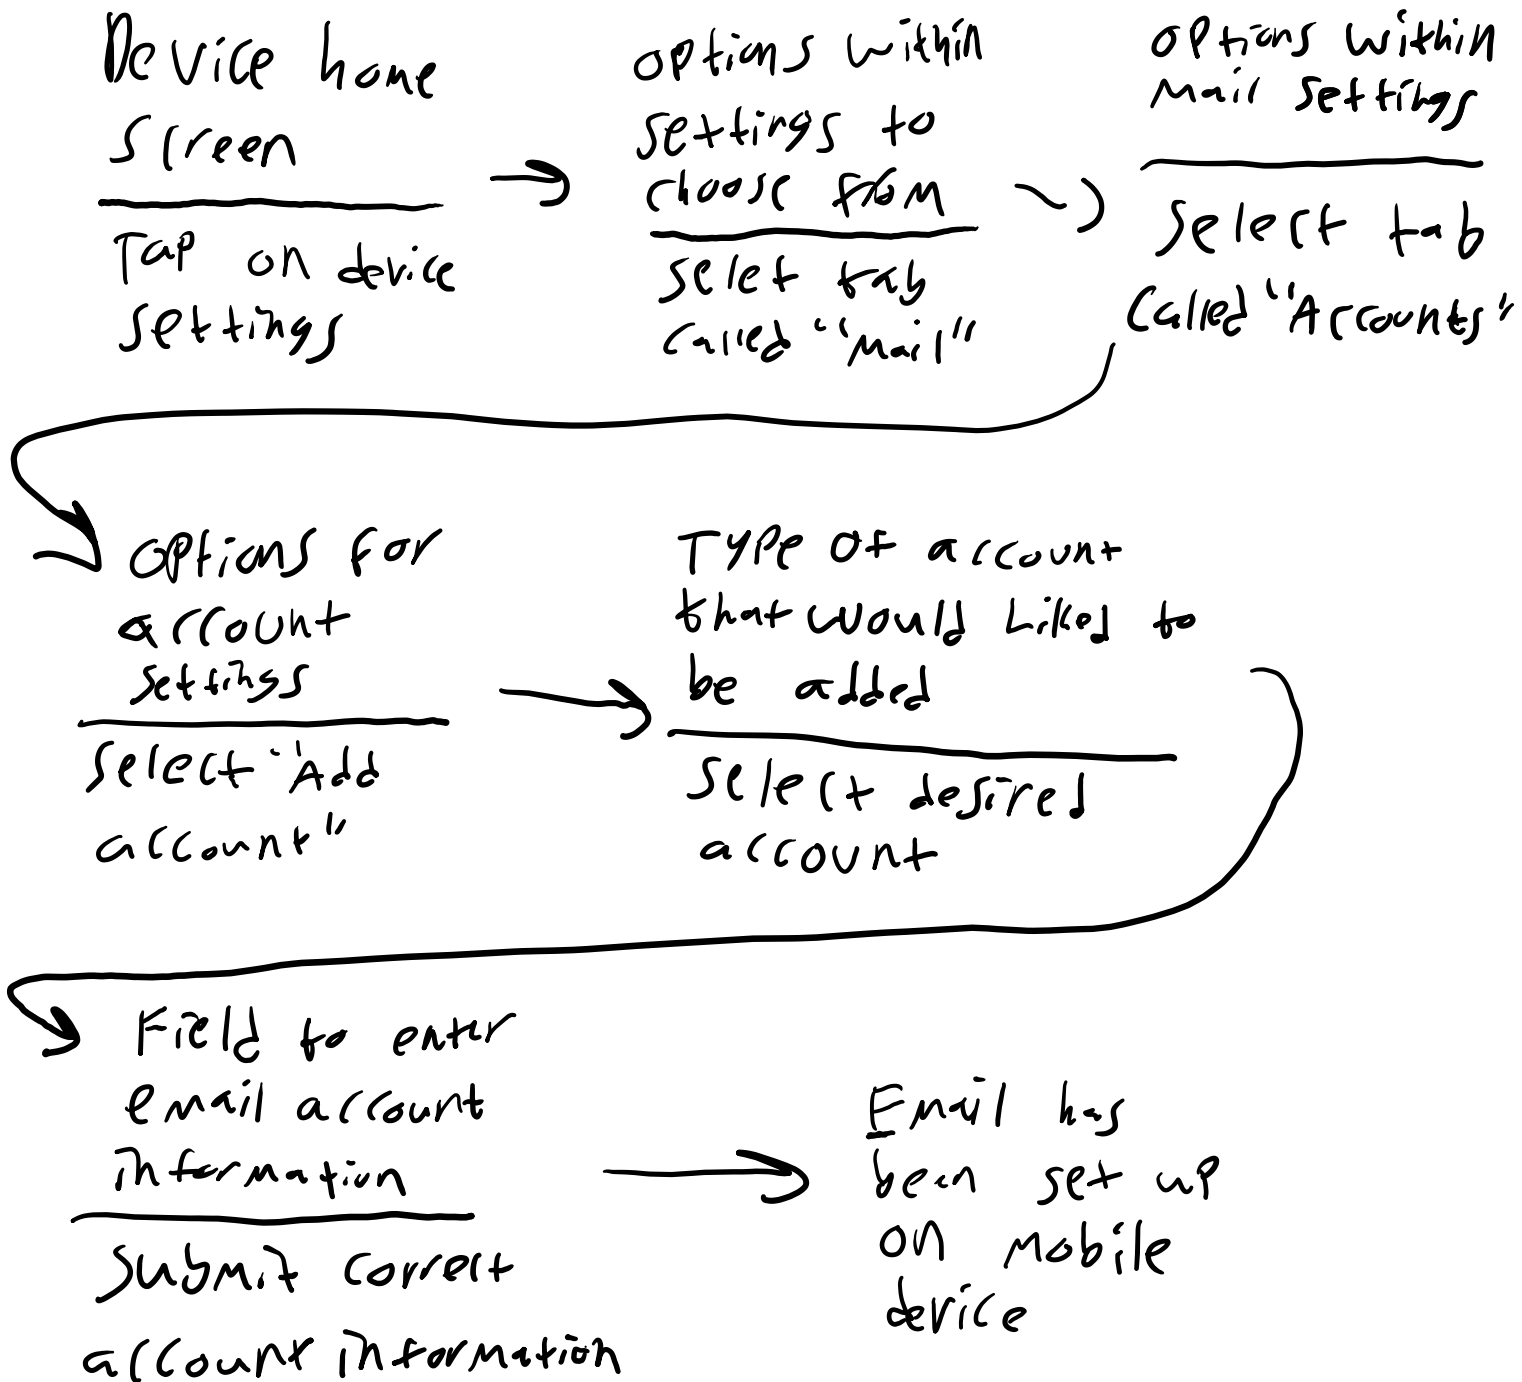 Device home
screen
Tap on device
settings
options within
settings to
choose from
selet tab
called "Mail"
options within
Mail settings
select tab
called "Accounts"
options for
account
settings
select "Add
account"
Type of account
that would liked to
be added
select desired
account
Field to enter
email account
information
submit correct
account information
Email has
been set up
on mobile
device